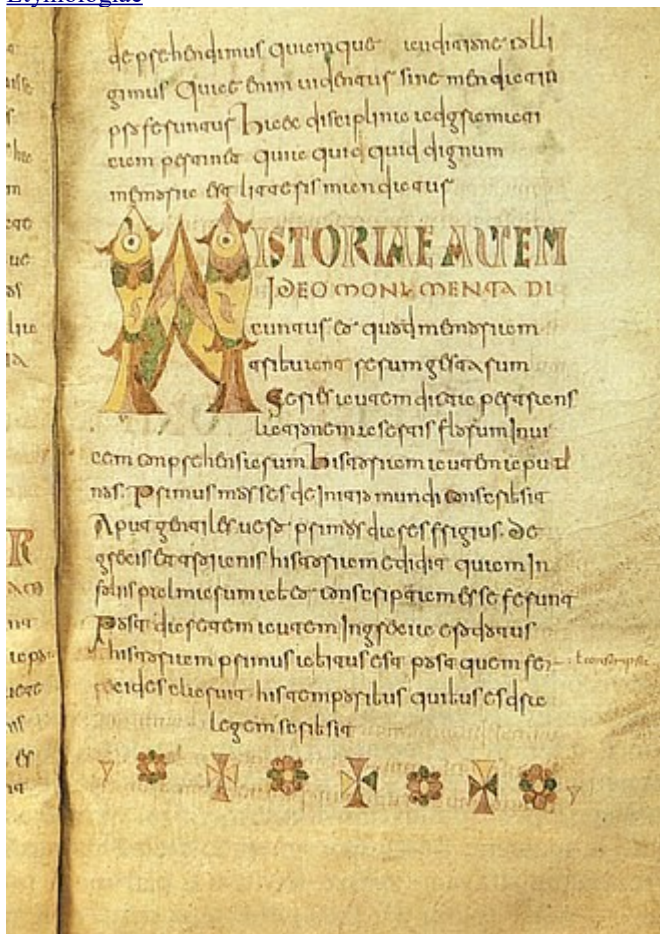 Etymologiae
deprehendimus quam que auditione colli
gimus Quae enim uidentur sine mendacin
pro feruntur haec disciplina ad gramati
cam pertinet quia quid quid dignum
memoria est litteris mandatur
HISTORIAE AUTEM
IDEO MONUMENTA DI
cuntur eo quod memoriam
tribuant rerum gestarum
Series autem dicta per trans
lationem a sertis florum Inui
cem conprehensarum historiam autem apud
nos. Primus moses de Initio mundi conscribsit
Aput gentiles uero primos dares frigius. de
grecis et troianis historiam edidit quam In
foliis palmarum ab eo conscriptam esse ferunt
Post daretem autem In grecia erodotus
historiam primus abitus est post quem fe
recides claruit his temporibus quibus esdra
legem scribsit